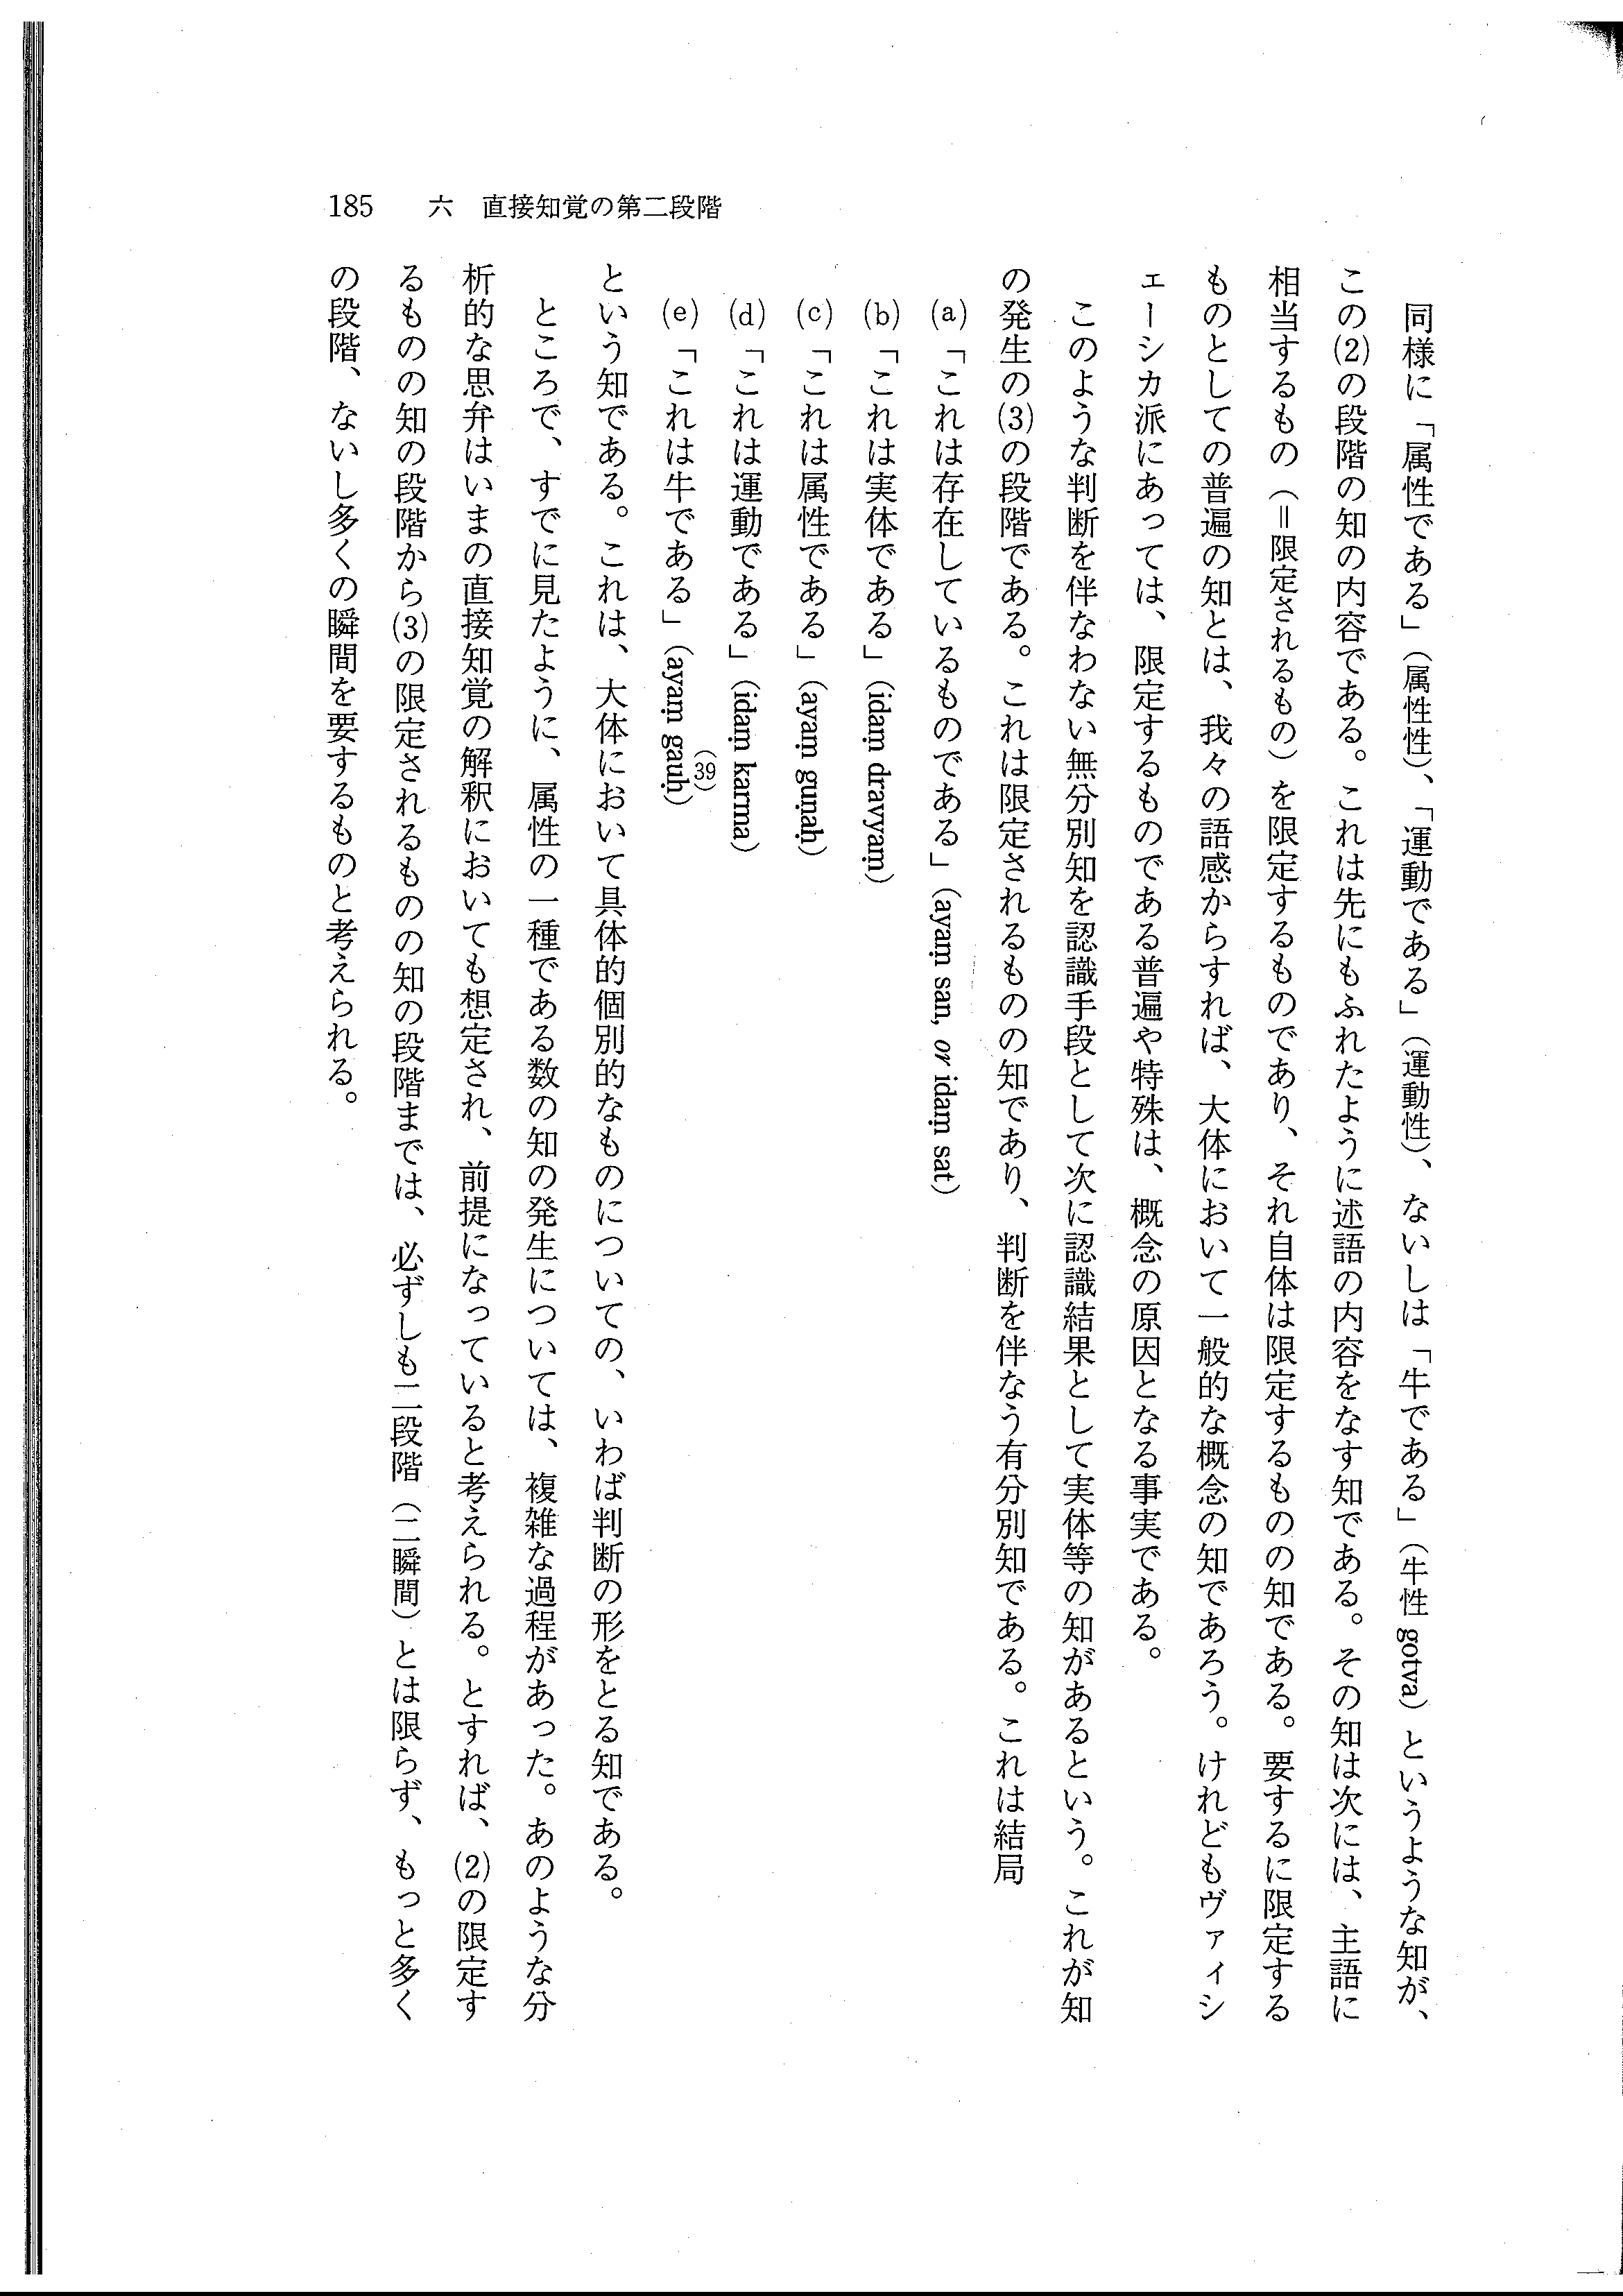 185　六　直接知覚の第二段階
　同様に「属性である」（属性性）、「運動である」（運動性）、ないしは「牛である」（牛性 gotva）というような知が、
この(2)の段階の知の内容である。これは先にもふれたように述語の内容をなす知である。その知は次には、主語に
相当するもの（＝限定されるもの）を限定するものであり、それ自体は限定するものの知である。要するに限定する
ものとしての普遍の知とは、我々の語感からすれば、大体において一般的な概念の知であろう。けれどもヴァイシ
ェーシカ派にあっては、限定するものである普遍や特殊は、概念の原因となる事実である。
　このような判断を伴なわない無分別知を認識手段として次に認識結果として実体等の知があるという。これが知
の発生の(3)の段階である。これは限定されるものの知であり、判断を伴なう有分別知である。これは結局
(a)「これは存在しているものである」（ayaṃ san, or idaṃ sat）
(b)「これは実体である」（idaṃ dravyaṃ）
(c)「これは属性である」（ayaṃ guṇaḥ）
(d)「これは運動である」（idaṃ karma）
(e)「これは牛である」（ayaṃ gauḥ）(39)
という知である。これは、大体において具体的個別的なものについての、いわば判断の形をとる知である。
　ところで、すでに見たように、属性の一種である数の知の発生については、複雑な過程があった。あのような分
析的な思弁はいまの直接知覚の解釈においても想定され、前提になっていると考えられる。とすれば、(2)の限定す
るものの知の段階から(3)の限定されるものの知の段階までは、必ずしも二段階（二瞬間）とは限らず、もっと多く
の段階、ないし多くの瞬間を要するものと考えられる。